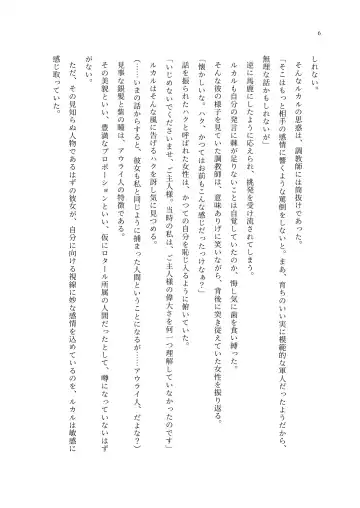 6
しれない。
そんなルカルの思惑は、調教師には筒抜けであった。
「そこはもっと相手の感情に響くような罵倒をしないと。まあ、育ちのいい実に模範的な軍人だったようだから、
無理な話かもしれないが」
逆に馬鹿にしたように応えられ、挑発を受け流されてしまう。
ルカルも自分の発言に棘が足りないことは自覚していたのか、悔し気に歯を食い縛った。
そんな彼の様子を見ていた調教師は、意味ありげに笑いながら、背後に突き従えていた女性を振り返る。
「懐かしいな。ハク、かつてはお前もこんな感じだったっけなぁ？」
話を振られたハクと呼ばれた女性は、かつての自分を恥じ入るように俯いていた。
「いじめないでくださいませ、ご主人様。当時の私は、ご主人様の偉大さを何一つ理解していなかったのです」
ルカルはそんな風に告げられるハクを訝し気に見つめる。
（……いまの話からすると、彼女も私と同じように捕まった人間ということになるが……アウライ人、だよな？）
見事な銀髪と紫の瞳は、アウライ人の特徴である。
その美貌といい、豊満なプロポーションといい、仮にロタール所属の人間だったとして、噂になっていないはず
がない。
ただ、その見知らぬ人物であるはずの彼女が、自分に向ける視線に妙な感情を込めているのを、ルカルは敏感に
感じ取っていた。